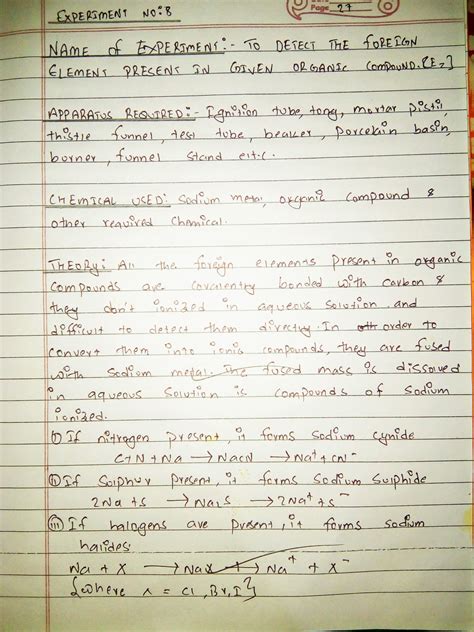 EXPERIMENT NO:8
Page 27
NAME of EXPERIMENT:- TO DETECT THE FOREIGN
ELEMENT PRESENT IN GIVEN ORGANIC COMPOUND. [E=]
APPARATUS REQUIRED:- Ignition tube, tong, mortar pistil
thistle funnel, test tube, beaker, porcelain basin,
burner, funnel stand eitc.
CHEMICAL USED: Sodium metal, organic compound &
other required Chemical.
THEORY: All the foreign elements present in organic
compounds are covalently bonded with carbon &
they don't ionized in aqueous solution and
difficult to detect them directly. In order to
convert them into ionic compounds, they are fused
with Sodium metal. The fused mass is dissolved
in aqueous solution is compounds of sodium
ionized.
(i) If nitrogen present, it forms sodium cynide
C+N+Na → NaCN → Na⁺+CN⁻
(ii) If Sulphur present, it forms Sodium Sulphide
2Na+S → Na₂S → 2Na⁺+S⁻
(iii) If halogens are present, it forms sodium
halides:
Na + X → NaX → Na⁺ + X⁻
{where X = Cl, Br, I}